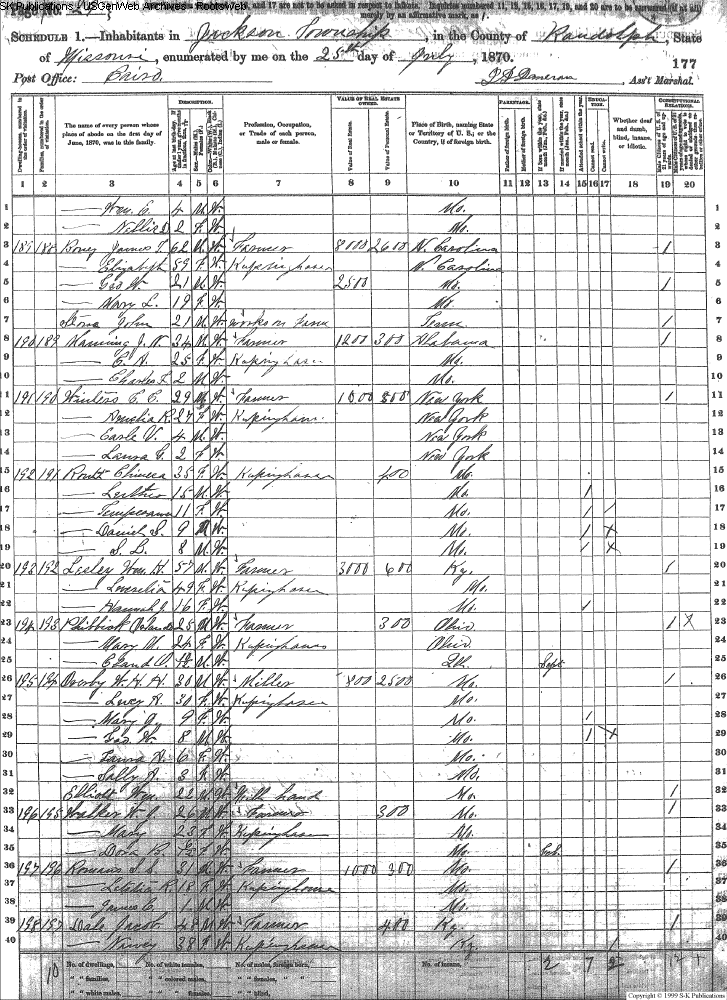 SK Publications / USGenWeb Archives - RootsWeb
Page No.
and 17 are not to be asked in respect to infants. Inquiries numbered 11, 12, 15, 16, 17, 19, and 20 are to be answered (if at all)
merely by an affirmative mark, as /.
SCHEDULE 1.—Inhabitants in Jackson Township, in the County of Randolph, State
of Missouri, enumerated by me on the 25th day of July, 1870. 177
Post Office: Cairo Ass't Marshal.
DESCRIPTION. VALUE OF REAL ESTATE OWNED. PARENTAGE. EDUCATION. CONSTITUTIONAL RELATIONS.
The name of every person whose place of abode on the first day of June, 1870, was in this family.
Profession, Occupation, or Trade of each person, male or female.
Value of Real Estate. Value of Personal Estate.
Place of Birth, naming State or Territory of U. S.; or the Country, if of foreign birth.
Father of foreign birth. Mother of foreign birth.
Attended school within the year. Cannot read. Cannot write.
Whether deaf and dumb, blind, insane, or idiotic.
1 2 3 4 5 6 7 8 9 10 11 12 13 14 15 16 17 18 19 20
1 — Wm. C. 4 M W Mo. 1
2 — Nellie 2 F W Mo. 2
3 189 188 James T. 62 M W Farmer 8000 2600 N. Carolina / 3
4 — Elizabeth 59 F W Keeping house N. Carolina 4
5 — Geo W. 21 M W 2500 Mo. / 5
6 — Mary L. 19 F W Mo. 6
7 John 21 M W works on farm Tenn / 7
8 190 189 Manning J. W. 34 M W Farmer 1200 300 Alabama / 8
9 — C. A. 25 F W Keeping house Mo. 9
10 — Charles F. 2 M W Mo. 10
11 191 190 Winters C. C. 29 M W Farmer 1000 800 New York / 11
12 — Amelia R. 27 F W Keeping house New York 12
13 — Earle V. 4 M W New York 13
14 — Laura G. 2 F W New York 14
15 192 191 Routt 35 F W Keeping house 400 Mo. 15
16 — 15 M W Mo. / 16
17 — 11 F W Mo. / / 17
18 — Daniel S. 9 M W Mo. / X 18
19 — S. B. 8 M W Mo. / X 19
20 193 192 Lesley Wm. H. 57 M W Farmer 3000 600 Ky. / 20
21 — 49 F W Keeping house Mo. 21
22 — Hannah J. 16 F W Mo. / 22
23 194 193 25 M W Farmer 300 Ohio / X 23
24 — Mary M. 24 F W Keeping house Ohio 24
25 — M W Ill. Sept 25
26 195 194 Overby W. H. H. 30 M W Miller 800 2500 Mo. / 26
27 — Lucy A. 30 F W Keeping house Mo. 27
28 — Mary 9 F W Mo. / 28
29 — Geo W. 8 M W Mo. / X 29
30 — Laura A. 6 F W Mo. 30
31 — Sally J. 3 F W Mo. 31
32 Elliott Wm. 22 M W Mill hand Mo. / 32
33 196 195 Walker W. J. 26 M W Farmer 300 Mo. / 33
34 — Mary 23 F W Keeping house Mo. 34
35 — Dora F W Mo. 35
36 197 196 Romans S. S. 31 M W Farmer 1000 300 Mo. / 36
37 — Letitia R. 18 F W Keeping house Mo. 37
38 — James C. 1 M W Mo. 38
39 198 197 Dale Jacob 48 M W Farmer 400 Ky. / 39
40 — Nancy 38 F W Keeping house Ky. / 40
10 No. of dwellings, No. of white females, No. of males, foreign born, No. of insane, 2 7 2 12 1
" " families, " " colored males, " " females, " "
" " white males, " " females, " " blind,
Copyright © 1999 S-K Publications